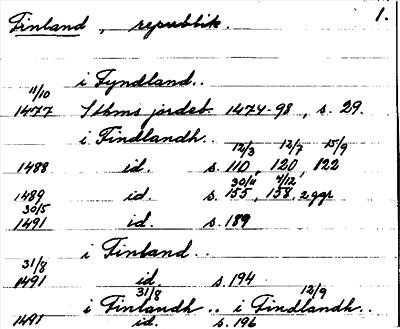 Finland, republik. 1.
i Fyndland..
11/10
1477 Sthms jordeb. 1474-98, s. 29.
i Findlandh..
12/3 12/7 15/9
1488 id. s. 110, 120, 122
30/11 4/12
1489 id. s. 155, 158, 2 ggr
30/5
1491 id. s. 189
i Finland..
31/8
1491 id. s. 194
31/8 12/9
i Finlandh.. i Findlandh..
1491 id. s. 196